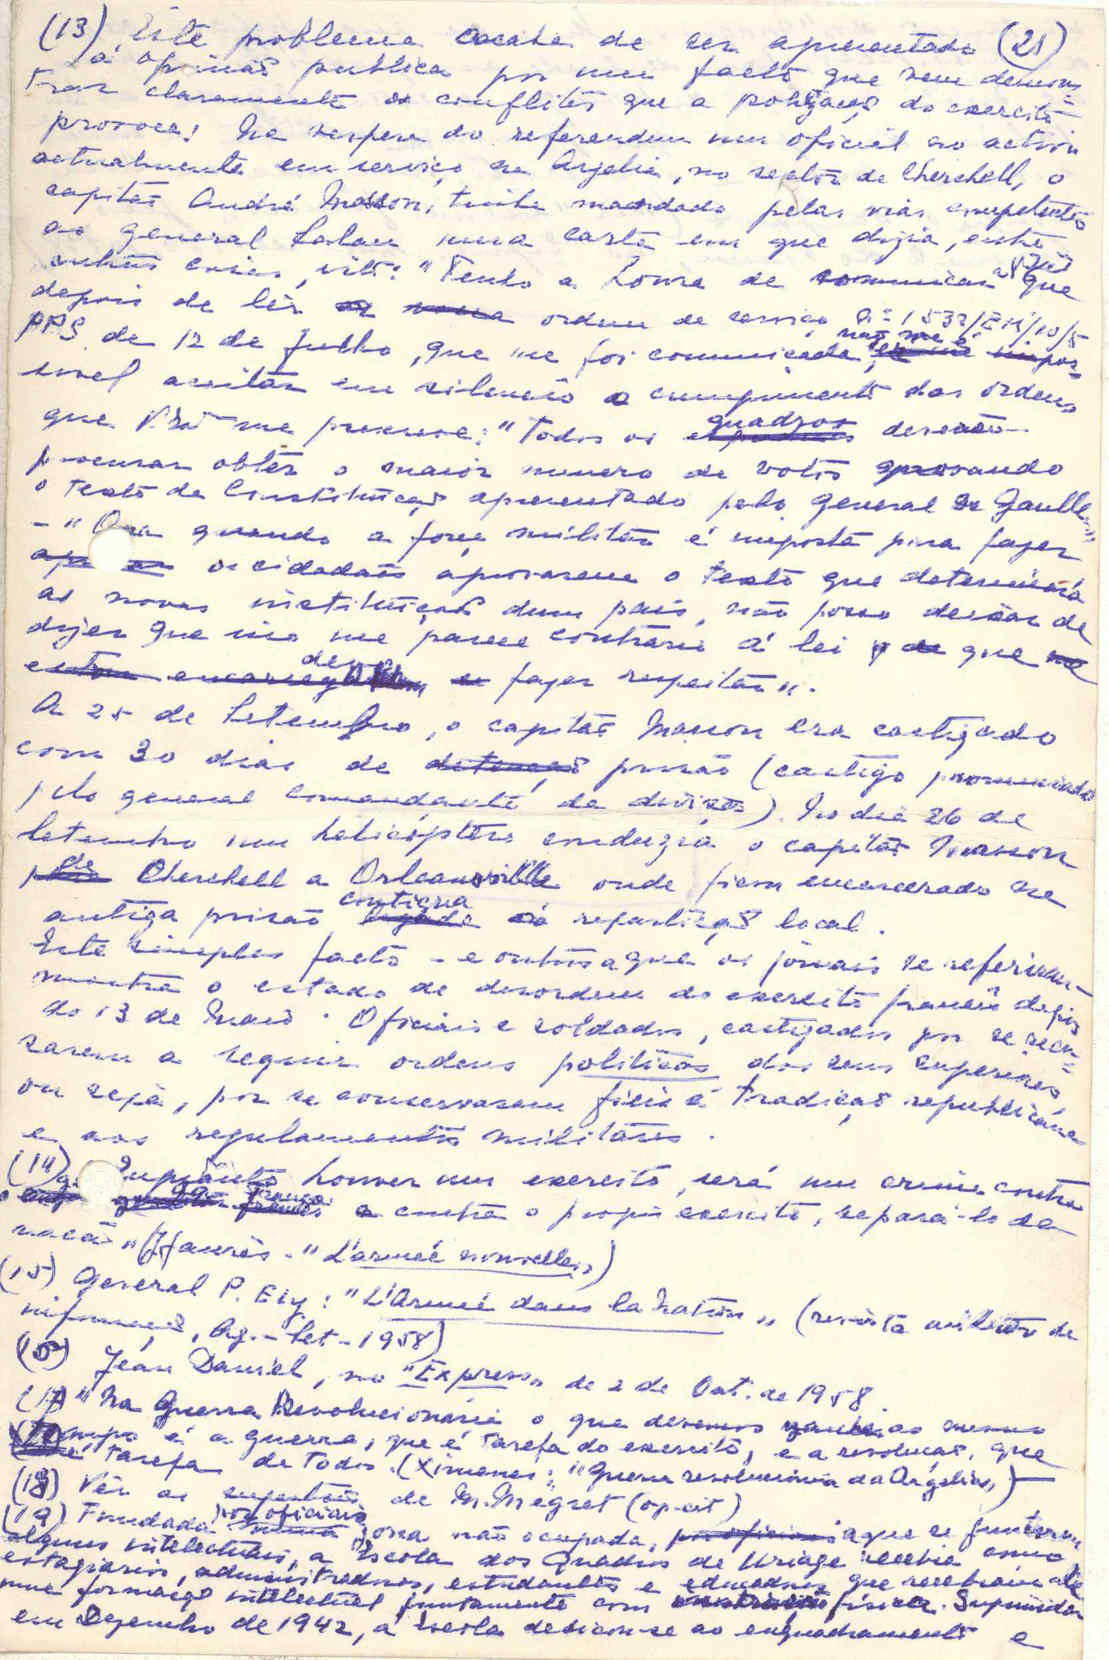 (13) Este problema acaba de ser apresentado (21)
á opinião publica por um facto que vem demons-
trar claramente os conflitos que a politização do exercito
provoca: Na vespera do referendum um oficial no activo
actualmente em serviço na Argelia, no sector de Cherchell, o
capitão André Masson, tinha mandado pelas vias competentes
ao general Salan uma carta em que dizia, entre
outras coisas, isto: "Tenho a honra de comunicar que
depois de lêr ordem de serviço nº 1532/EM/10/5
PPS. de 12 de Julho, que me foi comunicada, não me é impos-
sivel aceitar em silencio o cumprimento das ordens
que me prescreve: "Todos os quadros deverão
procurar obter o maior numero de votos aprovando
o texto da Constituição apresentado pelo general De Gaulle"
- "Ora quando a força militar é imposta para fazer
os cidadãos aprovarem o texto que determinará
as novas instituições dum pais, não posso deixar de
dizer que isso me parece contrario á lei que
devo fazer respeitar".
A 25 de Setembro, o capitão Masson era castigado
com 30 dias de prisão (castigo pronunciado
pelo general comandante da divisão). No dia 26 de
Setembro um helicóptero conduzia o capitão Masson
de Cherchell a Orleansville onde ficou encarcerado na
antiga prisão contigua á repartição local.
Este simples facto - e outros a que os jornais se referiram -
mostra o estado de desordem do exercito francês depois
do 13 de Maio. Oficiais e soldados, castigados por se recu-
sarem a seguir ordens politicas dos seus superiores
ou seja, por se conservarem fieis á tradição republicana
e aos regulamentos militares.
(14) Enquanto houver um exercito, será um crime contra
a França e contra o proprio exercito, separá-lo da
nação" (Jaurès - "L'armée nouvelle")
(15) General P. Ely: "L'Armée dans la Nation" (revista militar de
informação, Ag. - Set - 1958)
(16) Jean Daniel, no "Express" de 2 de Out. de 1958.
(17) "Na Guerra Revolucionaria o que devemos ganhar ao mesmo
tempo é a guerra, que é tarefa do exercito, e a revolução, que
é tarefa de todos. (Ximenes: "Guerra revolucionaria da Argelia")
(18) Vêr as de M. Mégret (op. cit)
(19) Fundada por oficiais zona não ocupada, a que se juntaram
alguns intelectuais, a Escola dos Quadros de Uriage recebia como
estagiarios, administradores, estudantes e educadores que recebiam ali
uma formação intelectual juntamente com fisica. Suprimida
em Dezembro de 1942, a Escola dedicou-se ao enquadramento e